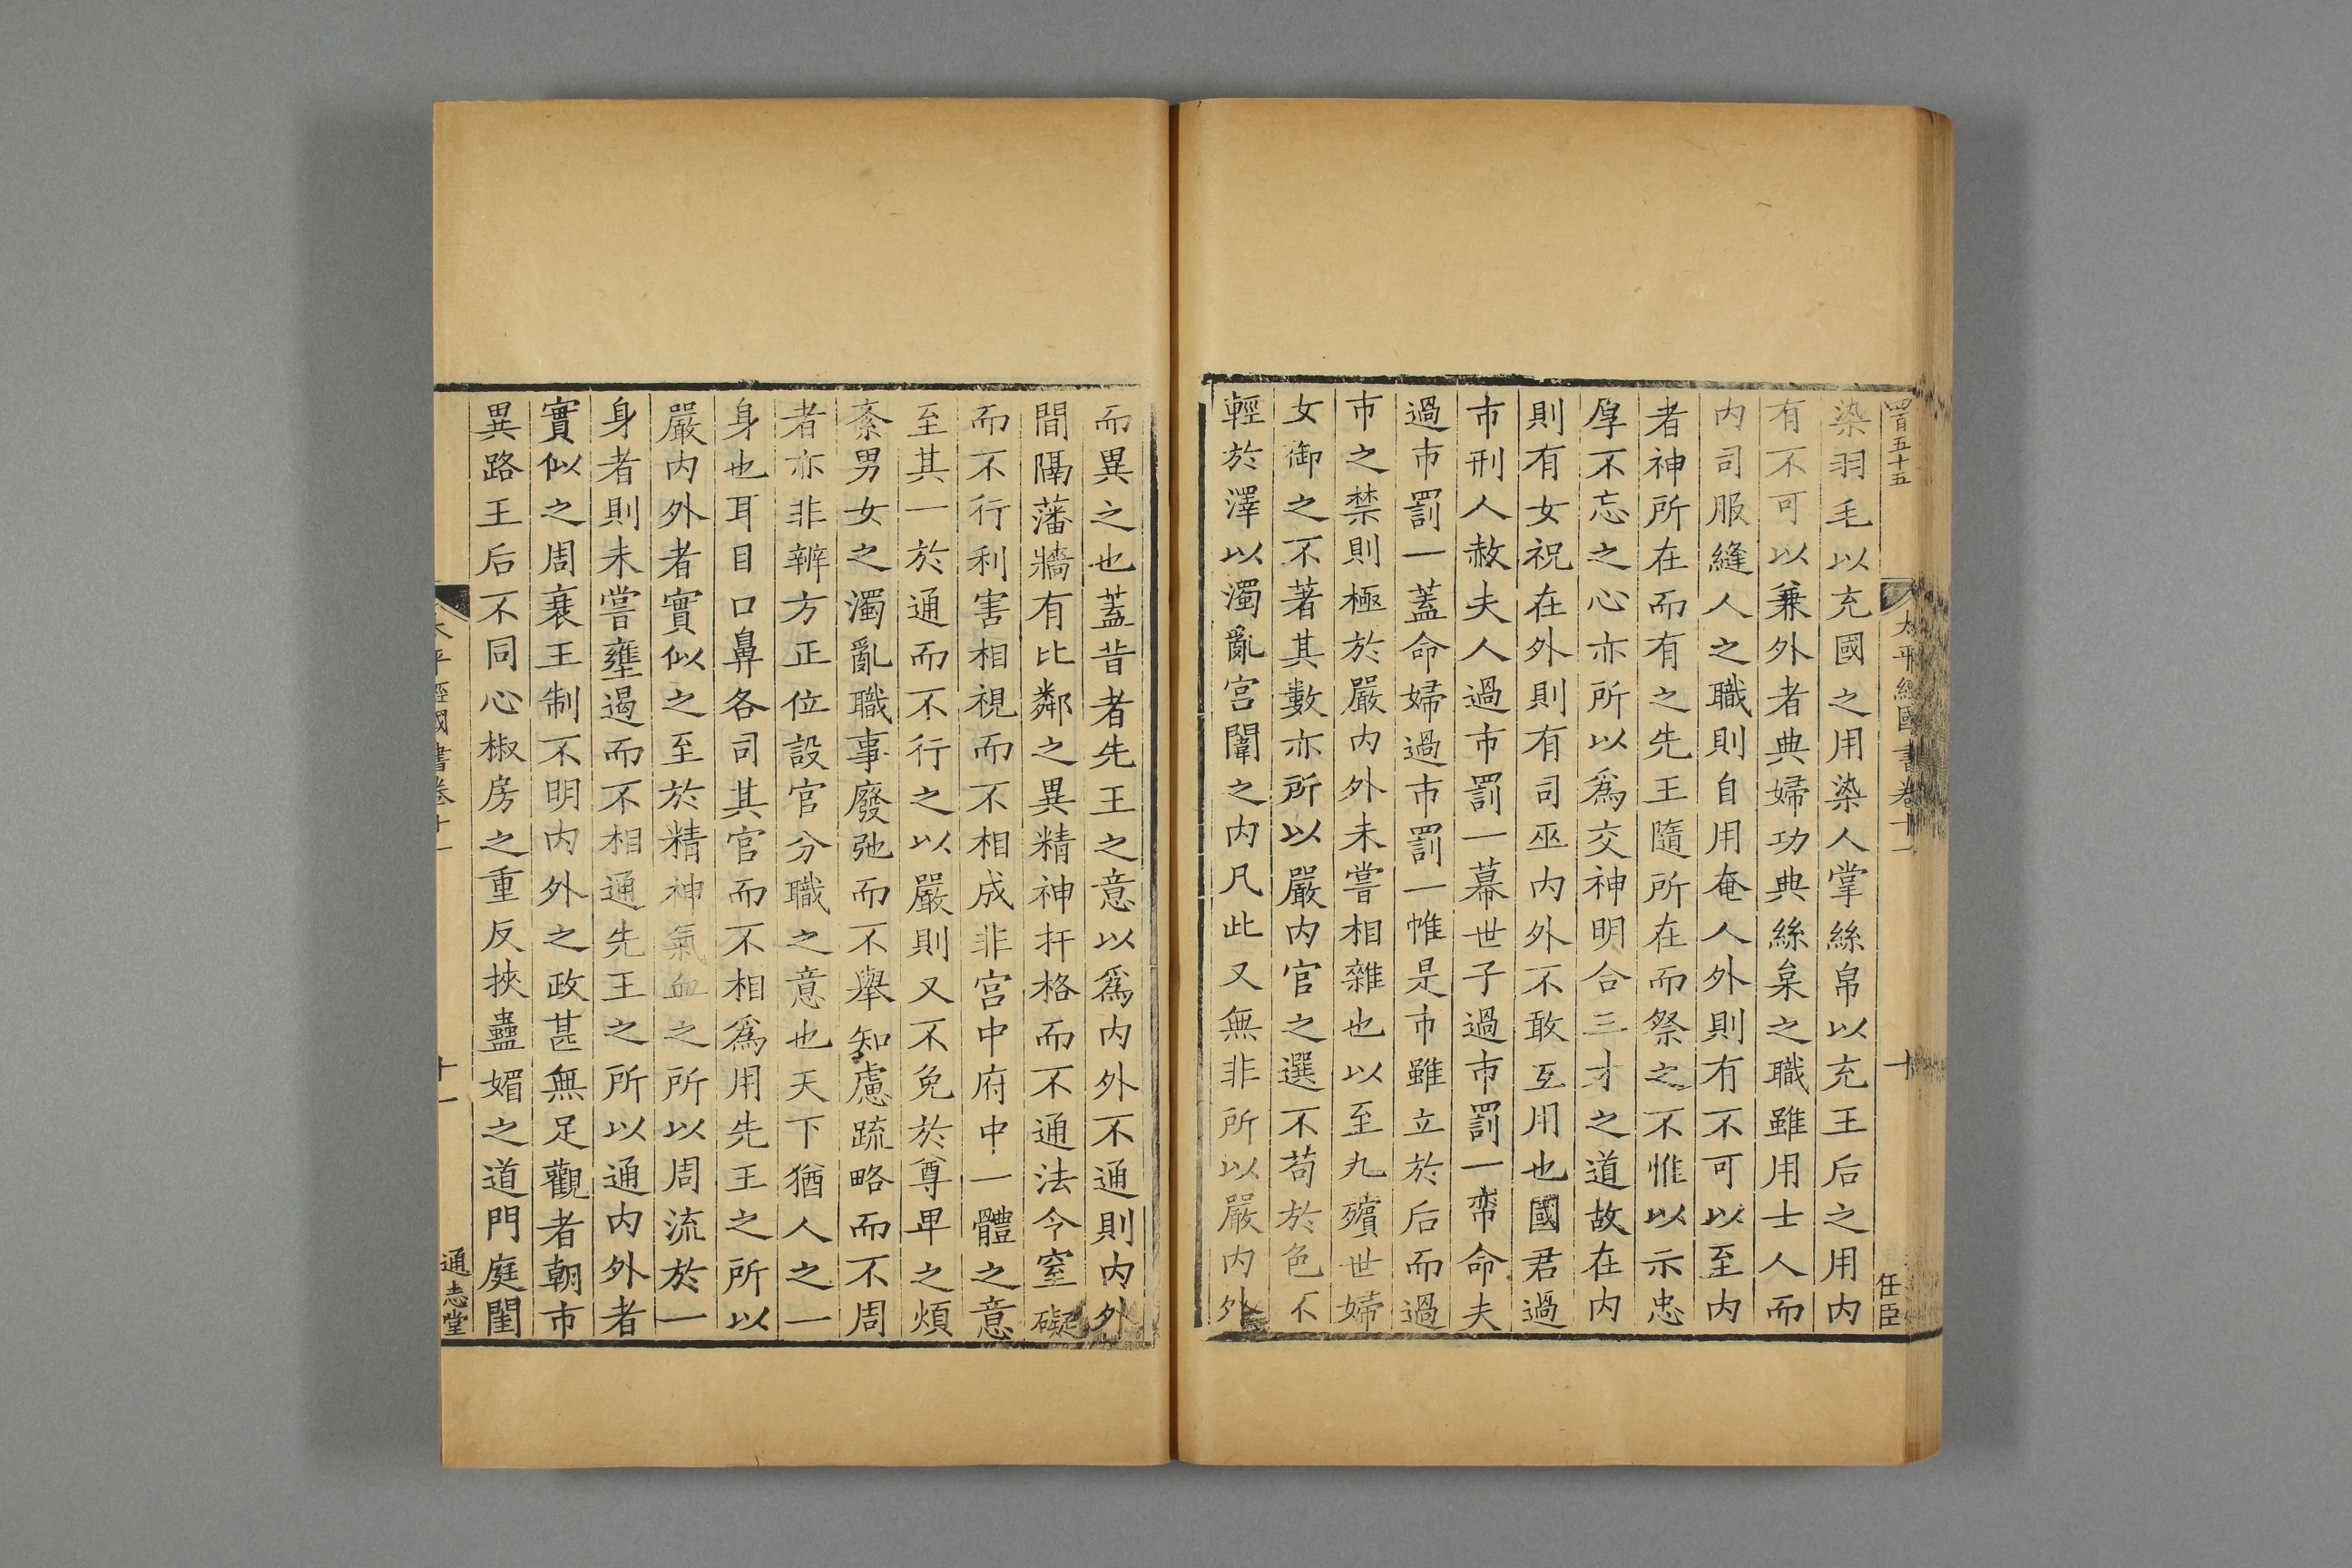 四百五十五
太平經國書卷十一
十
任臣
染羽毛以充國之用染人掌絲帛以充王后之用内
有不可以兼外者典婦功典絲枲之職雖用士人而
内司服縫人之職則自用奄人外則有不可以至内
者神所在而有之先王隨所在而祭之不惟以示忠
厚不忘之心亦所以爲交神明合三才之道故在内
則有女祝在外則有司巫内外不敢互用也國君過
市刑人赦夫人過市罰一幕世子過市罰一帟命夫
過市罰一蓋命婦過市罰一帷是市雖立於后而過
市之禁則極於嚴内外未嘗相雜也以至九殯世婦
女御之不著其數亦所以嚴内官之選不苟於色不
輕於澤以濁亂宫闈之内凡此又無非所以嚴内外
而異之也蓋昔者先王之意以爲内外不通則内外
間隔藩牆有比鄰之異精神扞格而不通法令窒礙
而不行利害相視而不相成非宫中府中一體之意
至其一於通而不行之以嚴則又不免於尊卑之煩
紊男女之濁亂職事廢弛而不舉知慮疏略而不周
者亦非辨方正位設官分職之意也天下猶人之一
身也耳目口鼻各司其官而不相爲用先王之所以
嚴内外者實似之至於精神氣血之所以周流於一
身者則未嘗壅遏而不相通先王之所以通内外者
實似之周衰王制不明内外之政甚無足觀者朝市
異路王后不同心椒房之重反挾蠱媚之道門庭閨
太平經國書卷十一
十一
通志堂